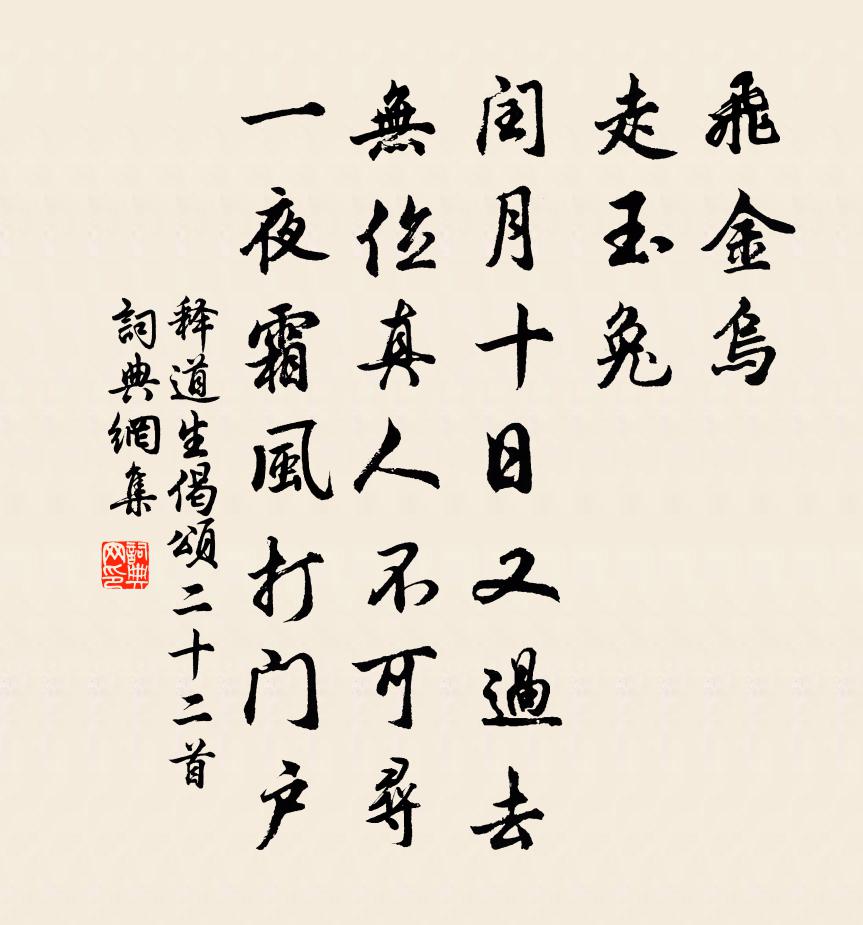 飛金烏
走玉兔
閏月十日又過去
無位真人不可尋
一夜霜風打門户
释道生偈頌二十二首
詞典網集
詞典网印